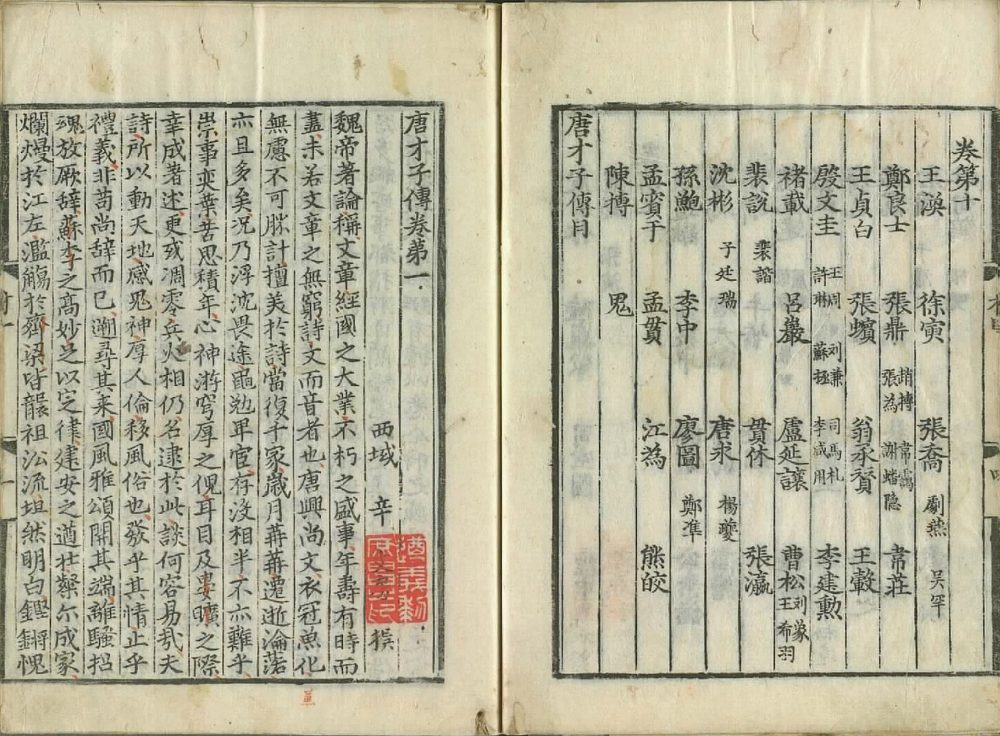 卷第十
王渙 徐寅 張喬 劇燕 吳罕
鄭良士 張鼎 趙摶 張為 常靄 謝蟠隐 常莊
王貞白 張蠙 翁承贊 王轂
殷文圭 王周 許琳 刘兼 蘇拯 司馬札 李咸用 李建勳
褚載 呂巖 盧延讓 曹松 刘象 王希羽
裴說 裴諧 貫休 張瀛
沈彬 子廷瑞 唐求 楊夔
孫鮑 李中 廖圖 鄭准
孟賓于 孟貫 江為 熊皎
陳摶 鬼
唐才子傳目
唐才子傳卷第一
西域 辛 撰
魏帝著論稱文章經國之大業不朽之盛事年壽有時而
盡未若文章之無窮詩文而音者也唐興尚文衣冠魚化
無慮不可勝計擅美於詩當復千家歲月苒苒遷逝淪落
亦且多矣况乃浮沈畏途黽勉卑官存沒相半不亦難乎
崇事奕葉苦思積年心神游穹厚之倪耳目及晏曠之際
幸成著述更或凋零兵火相仍名逮於此談何容易哉夫
詩所以動天地感鬼神厚人倫移風俗也發乎其情止乎
禮義非苟尚辞而已遡尋其來國風雅頌開其端離騷招
魂放厥辞蘇李之高妙足以定律建安之遒壯粲尔成家
爛熳於江左濫觴於齊梁皆襲祖沿流坦然明白鏗鏘愧